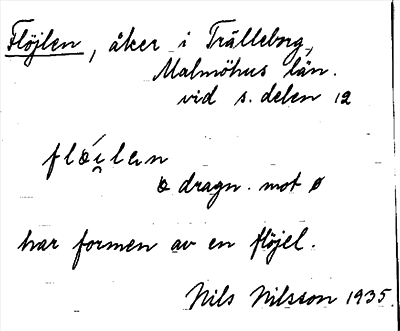 Flöjlen, åker i Trälleborg,
Malmöhus län.
vid s. delen 12
fløi̯lən
ø dragn. mot ø
har formen av en flöjel.
Nils Nilsson 1935.